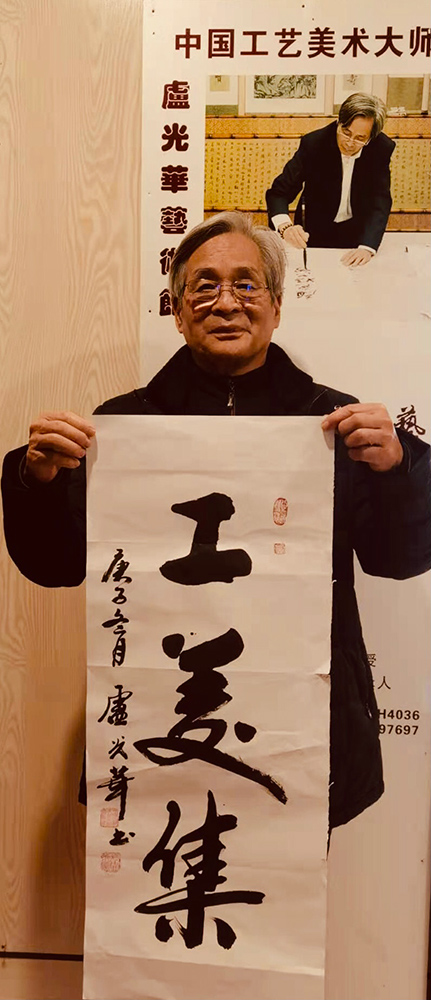 中国工艺美术大师
盧光華藝術館
藝
受
人
H4036
97697
工美集
庚子冬月 盧光華书